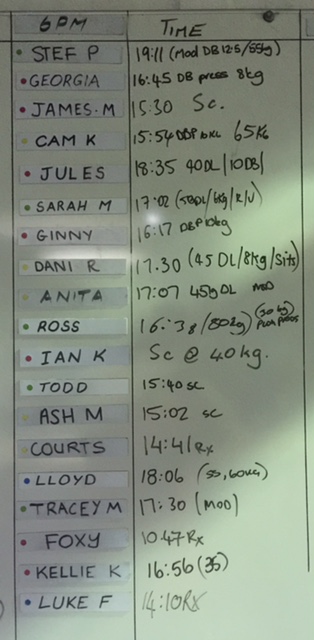 6PM TIME
STEF P 19:11 (Mod DB 12.5/55kg)
GEORGIA 16:45 DB press 8kg
JAMES.M 15:30 Sc.
CAM K 15:54 65Kg
JULES 18:35 40DL/10DB)
SARAH M 17:02
GINNY 16:17 DBP 10kg
DANI R 17.30 (45 DL/8kg/Sits)
ANITA 17:07 45kgDL MOD
ROSS 16:38
IAN K Sc @ 40kg.
TODD 15:40 sc
ASH M 15:02 sc
COURTS 14:41 Rx
LLOYD 18:06 (SS, 60KG)
TRACEY M 17:30 (MOD)
FOXY 10:47 Rx
KELLIE K 16:56 (35)
LUKE F 14:10 RX